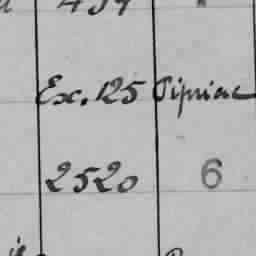 Ex. 125 Pipriac
2520 6